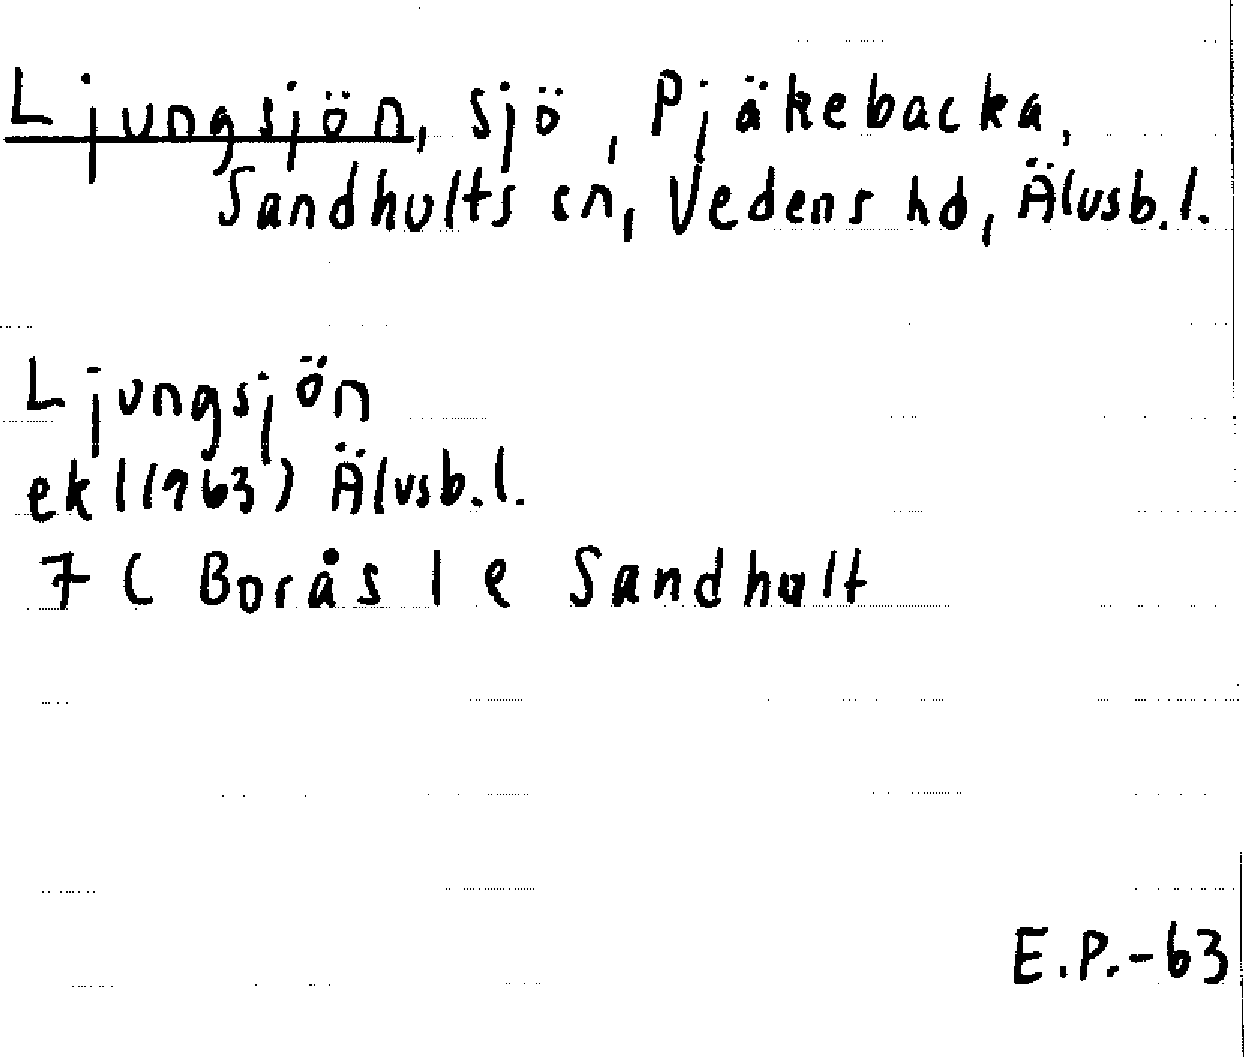 Ljungsjön, sjö, Pjäkebacka,
Sandhults sn, Vedens hd, Älvsb.l.
Ljungsjön
ekl (1963) Älvsb.l.
7 C Borås 1 e Sandhult
E.P.-63